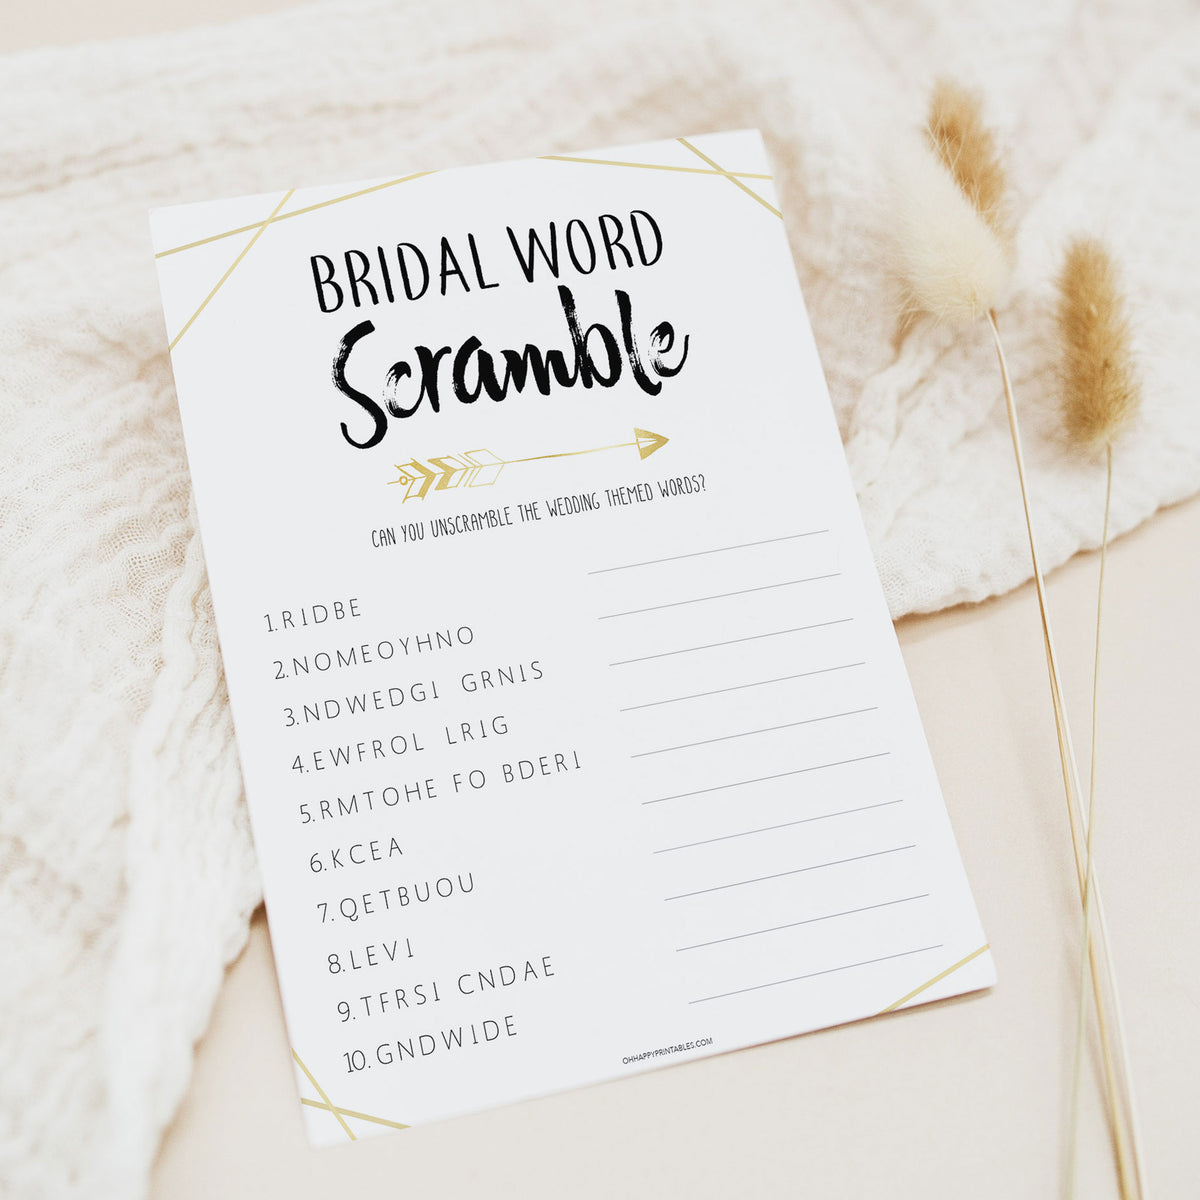 BRIDAL WORD
Scramble
CAN YOU UNSCRAMBLE THE WEDDING THEMED WORDS?
1. RIDBE
2. NOMEOYHNO
3. NDWEDGI GRNIS
4. EWFROL LRIG
5. RMTOHE FO BDERI
6. KCEA
7. QETBUOU
8. LEVI
9. TFRSI CNDAE
10. GNDWIDE
OHHAPPYPRINTABLES.COM